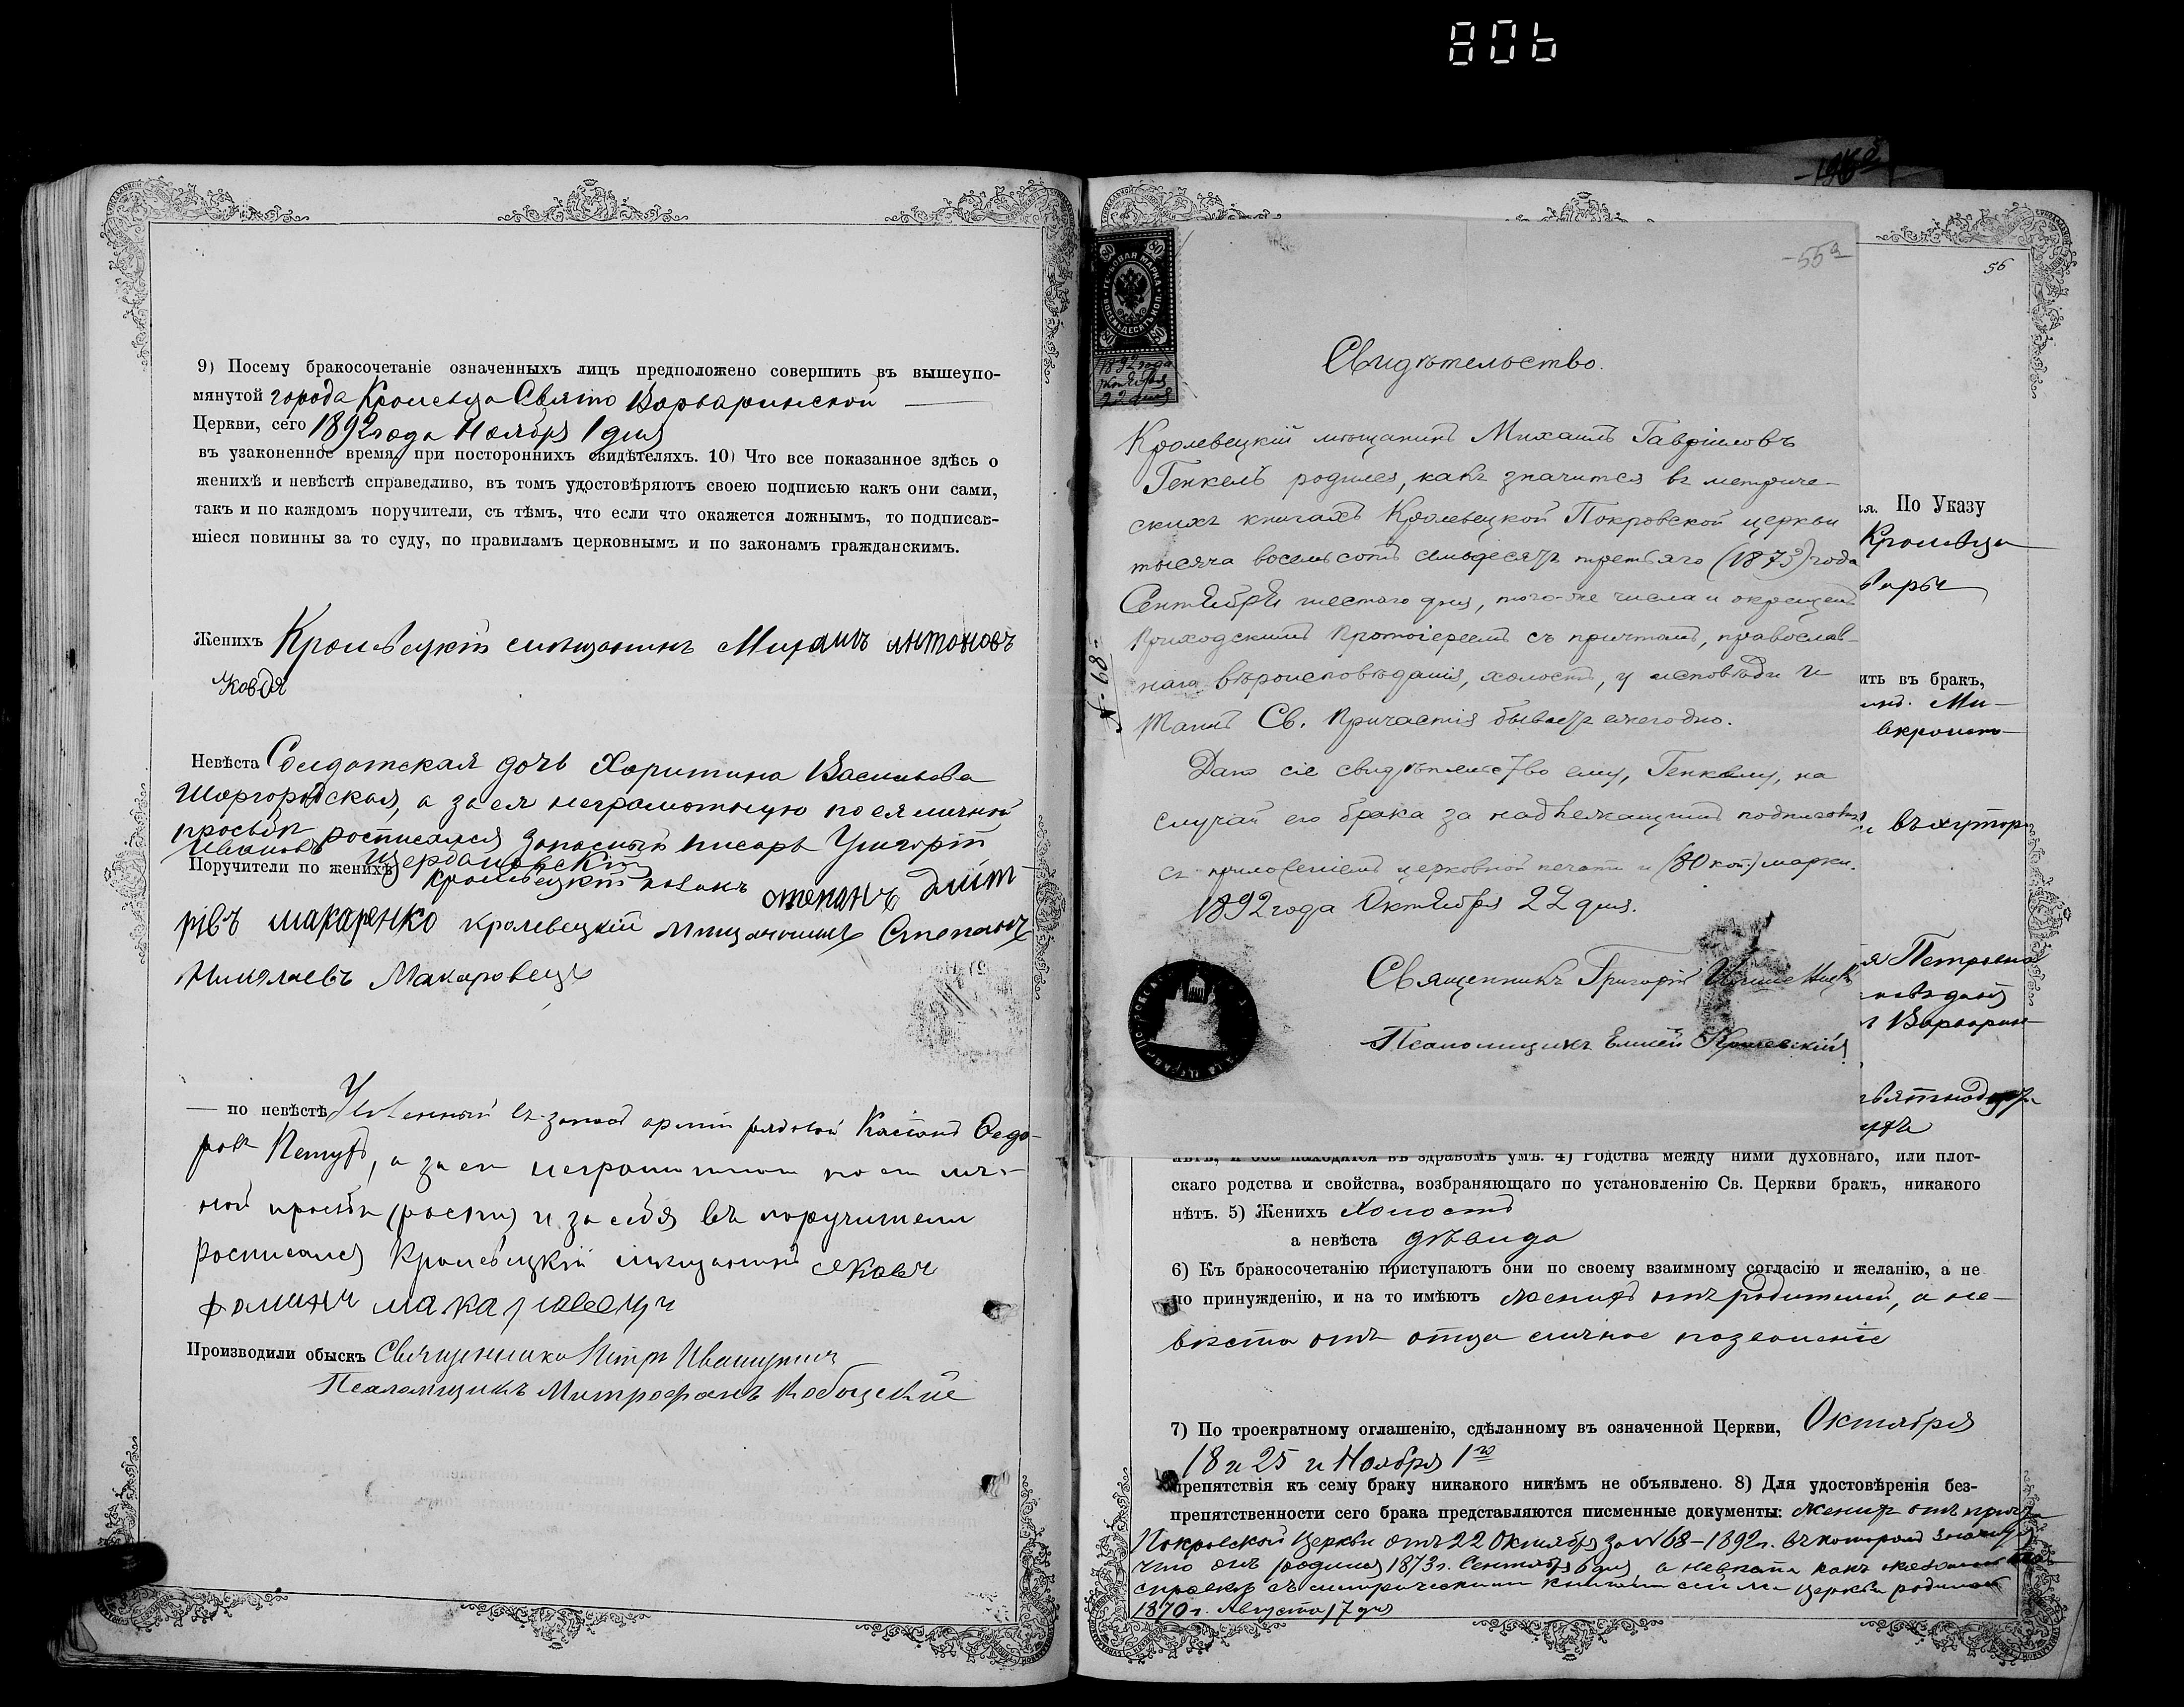 806
9) Посему бракосочетаніе означенныхъ лицъ предположено совершить въ вышеупо-
мянутой города Кролевца Свято Варваринской
Церкви, сего 1892 года Ноября 1 дня
въ узаконенное время, при постороннихъ свидѣтеляхъ. 10) Что все показанное здѣсь о
женихѣ и невѣстѣ справедливо, въ томъ удостовѣряютъ своею подписью какъ они сами,
такъ и по каждомъ поручители, съ тѣмъ, что если что окажется ложнымъ, то подписав-
шіеся повинны за то суду, по правиламъ церковнымъ и по законамъ гражданскимъ.
Женихъ Кролевецкій мѣщанинъ Михаилъ Антоновъ
Ковдя
Невѣста Солдатская дочь Харитина Васильева
Шаргородская, а за ея неграмотную по ея личной
просьбѣ росписался запасный писарь Григорій
Ивановъ
Поручители по женихѣ Кролевецкій козакъ степанъ дмит-
рівъ макаренко кролевецкій мѣщанинъ Степанъ
Николаевъ Макаровецъ
— по невѣстѣ Уволенный въ запасъ арміи рядовой Касіанъ Федо-
ровъ, а за его неграмотного по его лич-
ной просьбѣ и за себя въ поручители
росписался Кролевецкій мѣщанинъ Яковъ
фоминъ макаровецъ
Производили обыскъ Священникъ Петръ
Псаломщикъ Митрофанъ
-55а
56
ГЕРБОВАЯ МАРКА
ВОСЕМЬДЕСЯТЪ КОП.
80
1892 года
Октября
22 дня
№ 68
Свидѣтельство.
Кролевецкій мѣщанинъ Михаилъ Гавріиловъ
Генкель родился, какъ значится въ метриче-
скихъ книгахъ Кролевецкой Покровской церкви
тысяча восемьсотъ семьдесятъ третьяго (1873) года
Сентября шестаго дня, того-же числа и окрещенъ
Приходскимъ Протоіереемъ съ причтомъ, православ-
наго вѣроисповѣданія, холостъ, у исповѣди и
Таинъ Св. Причастія бываетъ ежегодно.
Дано сіе свидѣтельство ему, Генкелю, на
случай его брака за надлежащимъ подписомъ
съ приложеніемъ церковной печати и (80 коп) марки.
1892 года Октября 22 дня.
Священникъ Григорій
Псаломщикъ Елисей
По Указу
Кролевца
ить въ бракъ,
Ми-
въ хутор
я Петровна
Варварин
лѣтъ, и оба находятся въ здравомъ умѣ. 4) Родства между ними духовнаго, или плот-
скаго родства и свойства, возбраняющаго по установленію Св. Церкви бракъ, никакого
нѣтъ. 5) Женихъ Холостъ
а невѣста дѣвица
6) Къ бракосочетанію приступаютъ они по своему взаимному согласію и желанію, а не
по принужденію, и на то имѣютъ женихъ отъ родителей, а не-
вѣста отъ отца личное позволеніе
7) По троекратному оглашенію, сдѣланному въ означенной Церкви, Октября
18 и 25 и Ноября 1го
препятствія къ сему браку никакого никѣмъ не объявлено. 8) Для удостовѣренія без-
препятственности сего брака представляются писменные документы: женихъ отъ причта
Покровской Церкви отъ 22 Октября за № 68-1892 г. въ которомъ значится
что онъ родился 1873 г. Сентября 6 дня, а невѣста какъ
справкѣ съ метрическими книгами сей церкви родилась
1870 г. Августа 17 дня